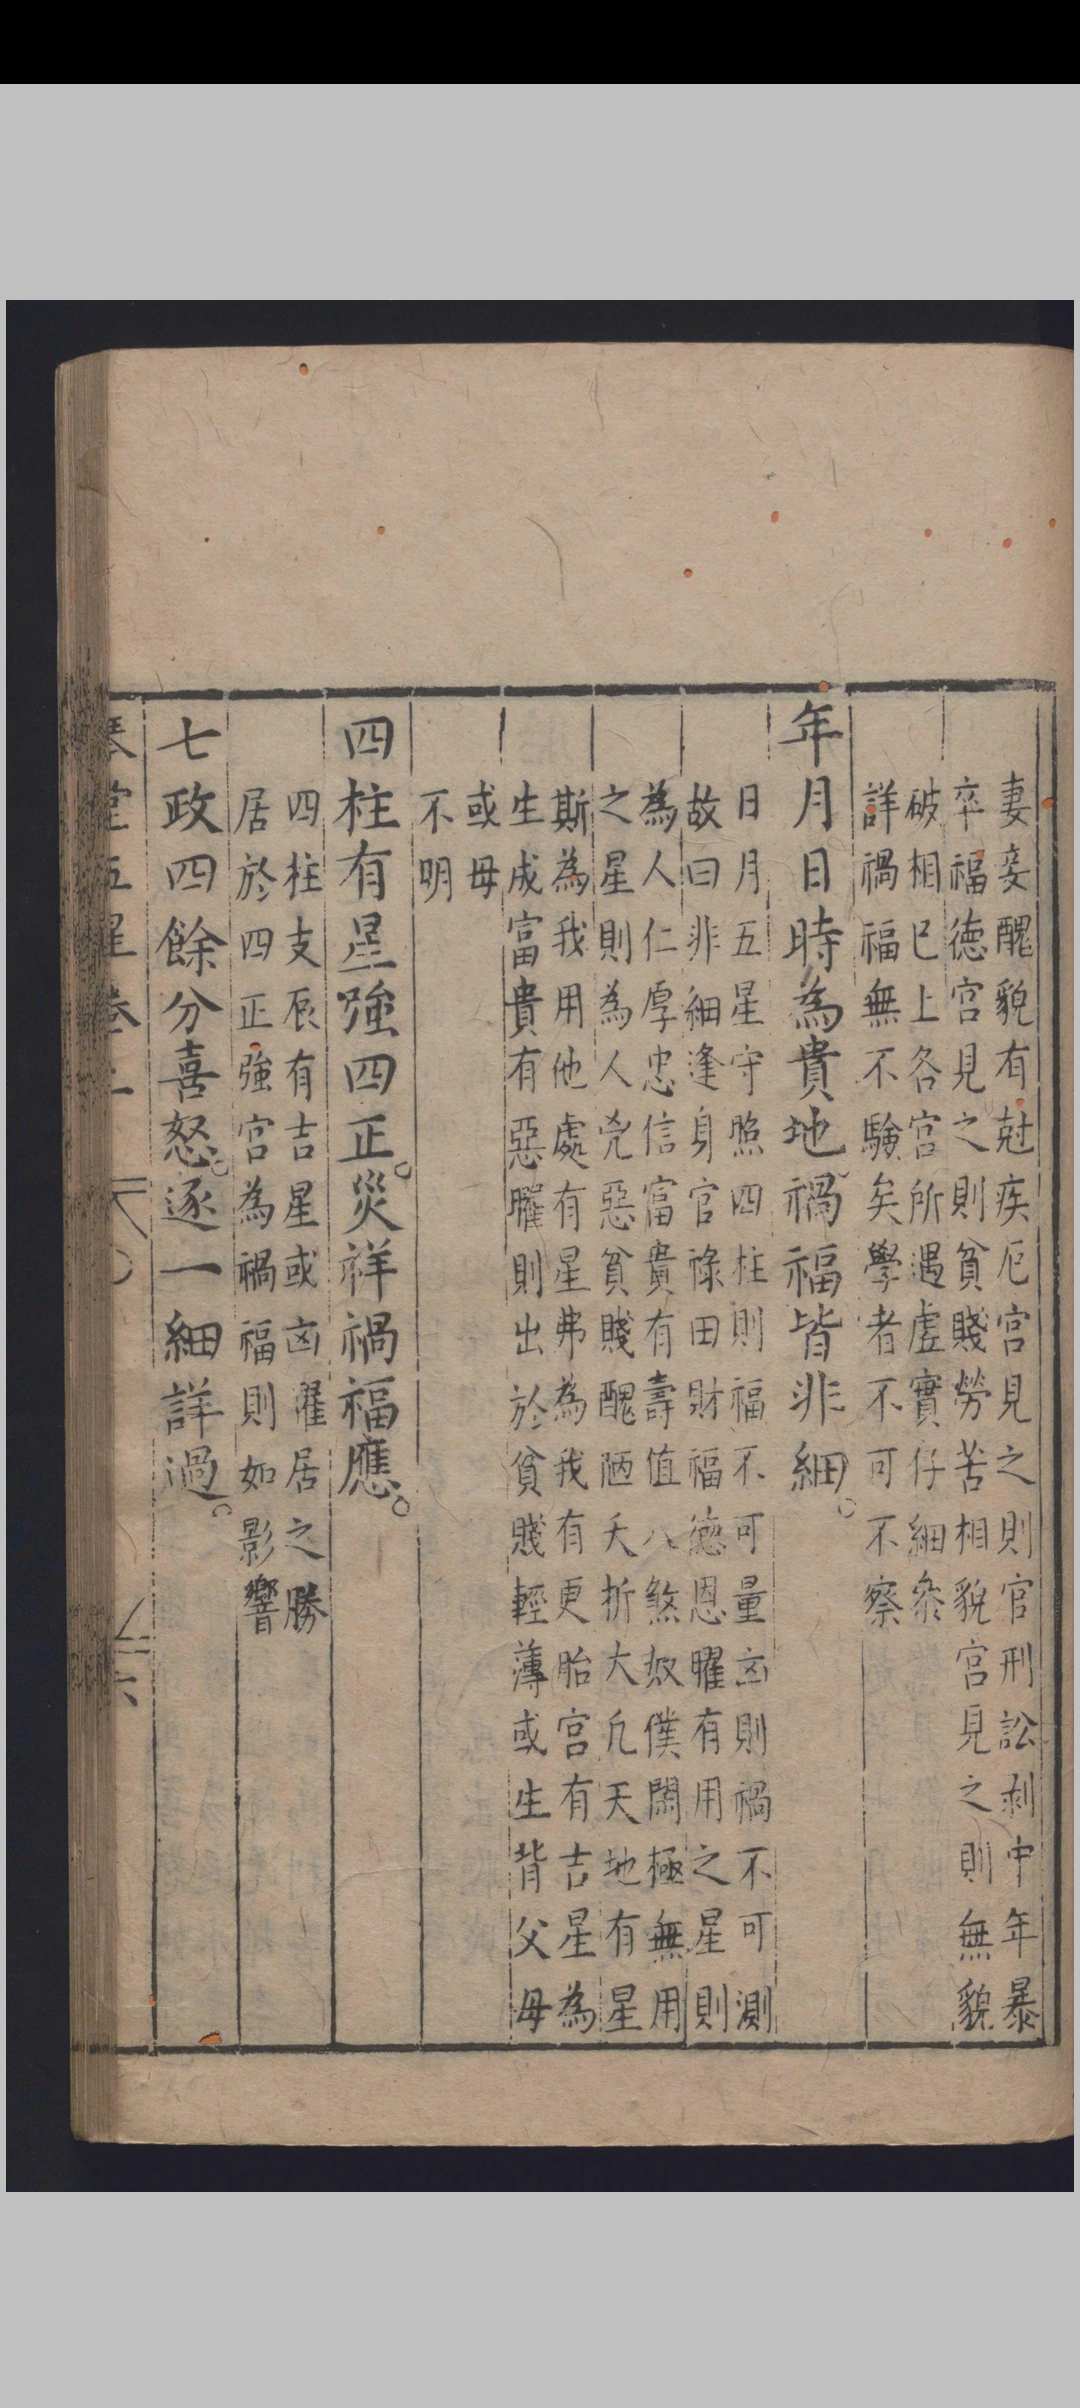 妻妾醜貌有尅疾厄宮見之則官刑訟剥中年暴
卒福德宮見之則貧賤勞苦相貌宮見之則無貌
破相已上各宮所遇虚實仔細叅
詳禍福無不驗矣學者不可不察
年月日時為貴地禍福皆非細
日月五星守照四柱則福不可量凶則禍不可測
故曰非細逢身官祿田財福德恩曜有用之星則
為人仁厚忠信富貴有壽值八煞奴僕閑極無用
之星則為人兇惡貧賤醜陋夭折大凡天地有星
斯為我用他處有星弗為我有更胎宮有吉星為
生成富貴有惡曜則出於貧賤輕薄或生背父母
或母
不明
四柱有星強四正災祥禍福應
四柱支辰有吉星或凶曜居之勝
居於四正強宮為禍福則如影響
七政四餘分喜怒逐一細詳過
琴堂五星卷上
六